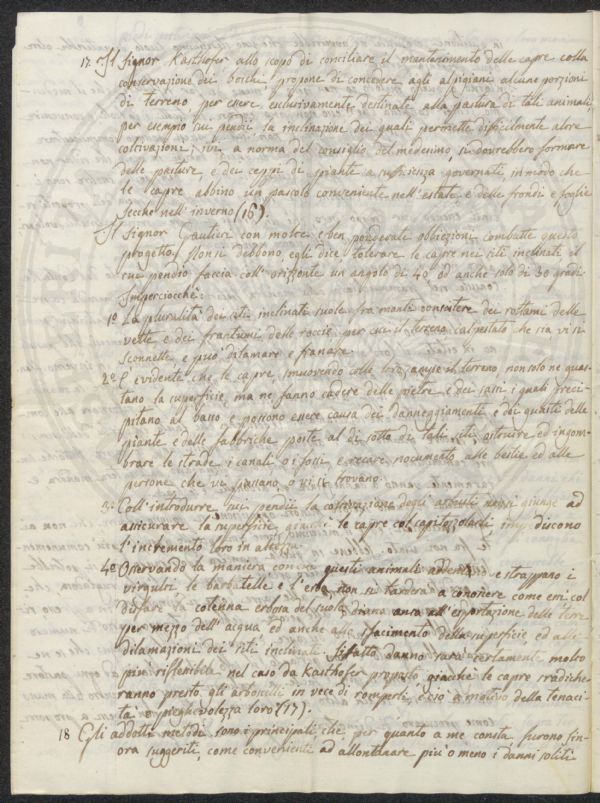 17. Il Signor Kasthofer allo scopo di conciliare il mantenimento delle capre colla
conservazione dei boschi propone di concedere agli alpigiani alcune porzioni
di terreno per essere esclusivamente destinate alla pastura di tali animali,
per esempio sui pendii la inclinazione dei quali permette difficilmente altre
coltivazioni; ivi, a norma del consiglio del medesimo, si dovrebbero formare
delle pasture, e dei ceppi di piante a sufficienza governati, in modo che
le capre abbino un pascolo conveniente nell'estate, e delle frondi e foglie
secche nell'inverno (16).
Il Signor Gautieri con molte e ben ponderate obbiezioni combatte questo
progetto. Non si debbono, egli dice, tolerare le capre nei siti inclinati il
cui pendio faccia coll'orizzonte un angolo di 40, ed anche solo di 30 gradi
Imperciocchè:
1o La pluralità dei siti inclinati suole fra monti consistere dei rottami delle
vette e dei frantumi delle roccie, per cui il terreno calpestato che sia, vi si
sconnette e può dilamare e franare.
2o È evidente che le capre, smuovendo colle loro il terreno, non solo ne gua-
stano la superficie, ma ne fanno cadere delle pietre e dei sassi i quali preci-
pitano al basso e possono essere causa dei danneggiamenti e dei guasti delle
piante e delle fabbriche poste al di sotto di tali siti, ostruire ed ingom-
brare le strade, i canali o i fossi, e recare nocumento alle bestie ed alle
persone che vi passano o vi si trovano.
3o Coll'introdurre sui pendii la coltivazione degli arbusti non si giunge ad
assicurare la superficie, giacchè le capre col capitozzolarli impediscono
l'incremento loro in altezza.
4o Osservando la maniera con cui questi animali addentano e strappano i
virgulti, le barbatelle e l'erba non si tarderà a conoscere come essi col
disfare la cotenna erbosa del suolo diano ansa all'esportazione delle terre
per mezzo dell'acqua ed anche allo sfacimento della superficie, ed alle
dilamazioni dei siti inclinati. Siffatto danno sarà certamente molto
più riflessibile nel caso da Kasthofer proposto, giacchè le capre sradiche-
ranno presto gli arboscelli in vece di romperli, e ciò a motivo della tenaci-
tà e pieghevolezza loro (17).
18 Gli addotti metodi sono i principali, che, per quanto a me consta, furono fin-
ora suggeriti, come convenienti ad allontanare più o meno i danni soliti